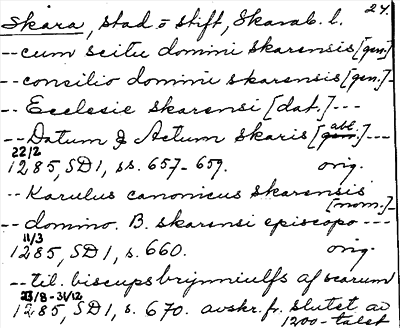 24.
Skara, stad o stift, Skarab. l.
--cum scitu domini skarensis [gen.]
--consilio domini skarensis [gen.]--
--Ecclesie skarensi [dat.]---
--Datum & Actum skaris [abl.]---
22/2
1285, SD1, ss. 657-659. orig.
--Karulus canonicus skarensis [nom.]-
--domino. B. skarensi episcopo ---
11/3
1285, SD1, s. 660. orig.
--til. biscups brynniulfs af scarum
1285, SD1, s. 670. avskr. fr. slutet av
1200-talet